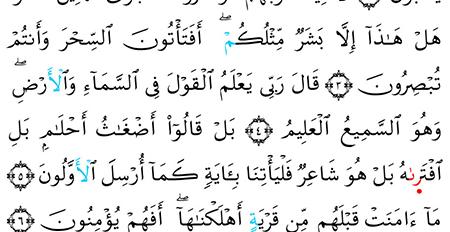 هَلْ هَـٰذَآ إِلَّا بَشَرٌ مِّثْلُكُمْ ۖ أَفَتَأْتُونَ ٱلسِّحْرَ وَأَنتُمْ
تُبْصِرُونَ ﴿٣﴾ قَالَ رَبِّى يَعْلَمُ ٱلْقَوْلَ فِى ٱلسَّمَآءِ وَٱلْأَرْضِ ۖ
وَهُوَ ٱلسَّمِيعُ ٱلْعَلِيمُ ﴿٤﴾ بَلْ قَالُوٓا۟ أَضْغَـٰثُ أَحْلَـٰمٍۭ بَلِ
ٱفْتَرَىٰهُ بَلْ هُوَ شَاعِرٌ فَلْيَأْتِنَا بِـَٔايَةٍ كَمَآ أُرْسِلَ ٱلْأَوَّلُونَ ﴿٥﴾
مَآ ءَامَنَتْ قَبْلَهُم مِّن قَرْيَةٍ أَهْلَكْنَـٰهَآ ۖ أَفَهُمْ يُؤْمِنُونَ ﴿٦﴾